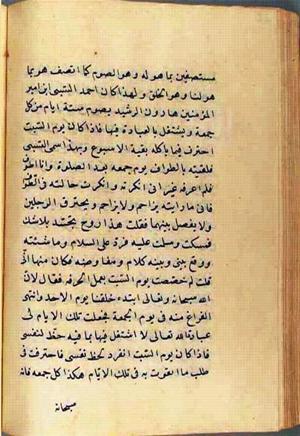 متصفين بما هو له وهو الصوم كما اتصف هو بما
هو لنا وهو الخلق ولهذا كان احمد السبتى ابن امير
المؤمنين هارون الرشيد يصوم ستة ايام من كل
جمعة ويشتغل بالعبادة فيها فاذا كان يوم السبت
احترف فيما ياكله بقية الاسبوع وبهذا سمى السبتى
فلقيته بالطواف يوم جمعه بعد الصلوة وانا اطوف
فلم اعرفه غير انى انكرته وانكرت حالته فى الطواف
فانى ما رايته يزاحم ولا يزاحم ويخترق الرجلين
ولا يفصل بينهما فقلت هذا روح تجسد بلا شك
فمسكته وسلمت عليه فرد على السلام وماشيته
ووقع بينى وبينه كلام ومفاوضه فكان منها انى
قلت لم خصصت يوم السبت بعمل الحرفه فقال لان
الله سبحانه وتعالى ابتدء خلقنا يوم الاحد وانتهى
الفراغ منه فى يوم الجمعة فجعلت تلك الايام لى
عبادة لله تعالى لا اشتغل فيها بما فيه حظ لنفسى
فاذا كان يوم السبت انفرد لحظ نفسى فاحترفت فى
طلب ما اتقوت به فى تلك الايام هكذا كل جمعه فانه
سبحانه